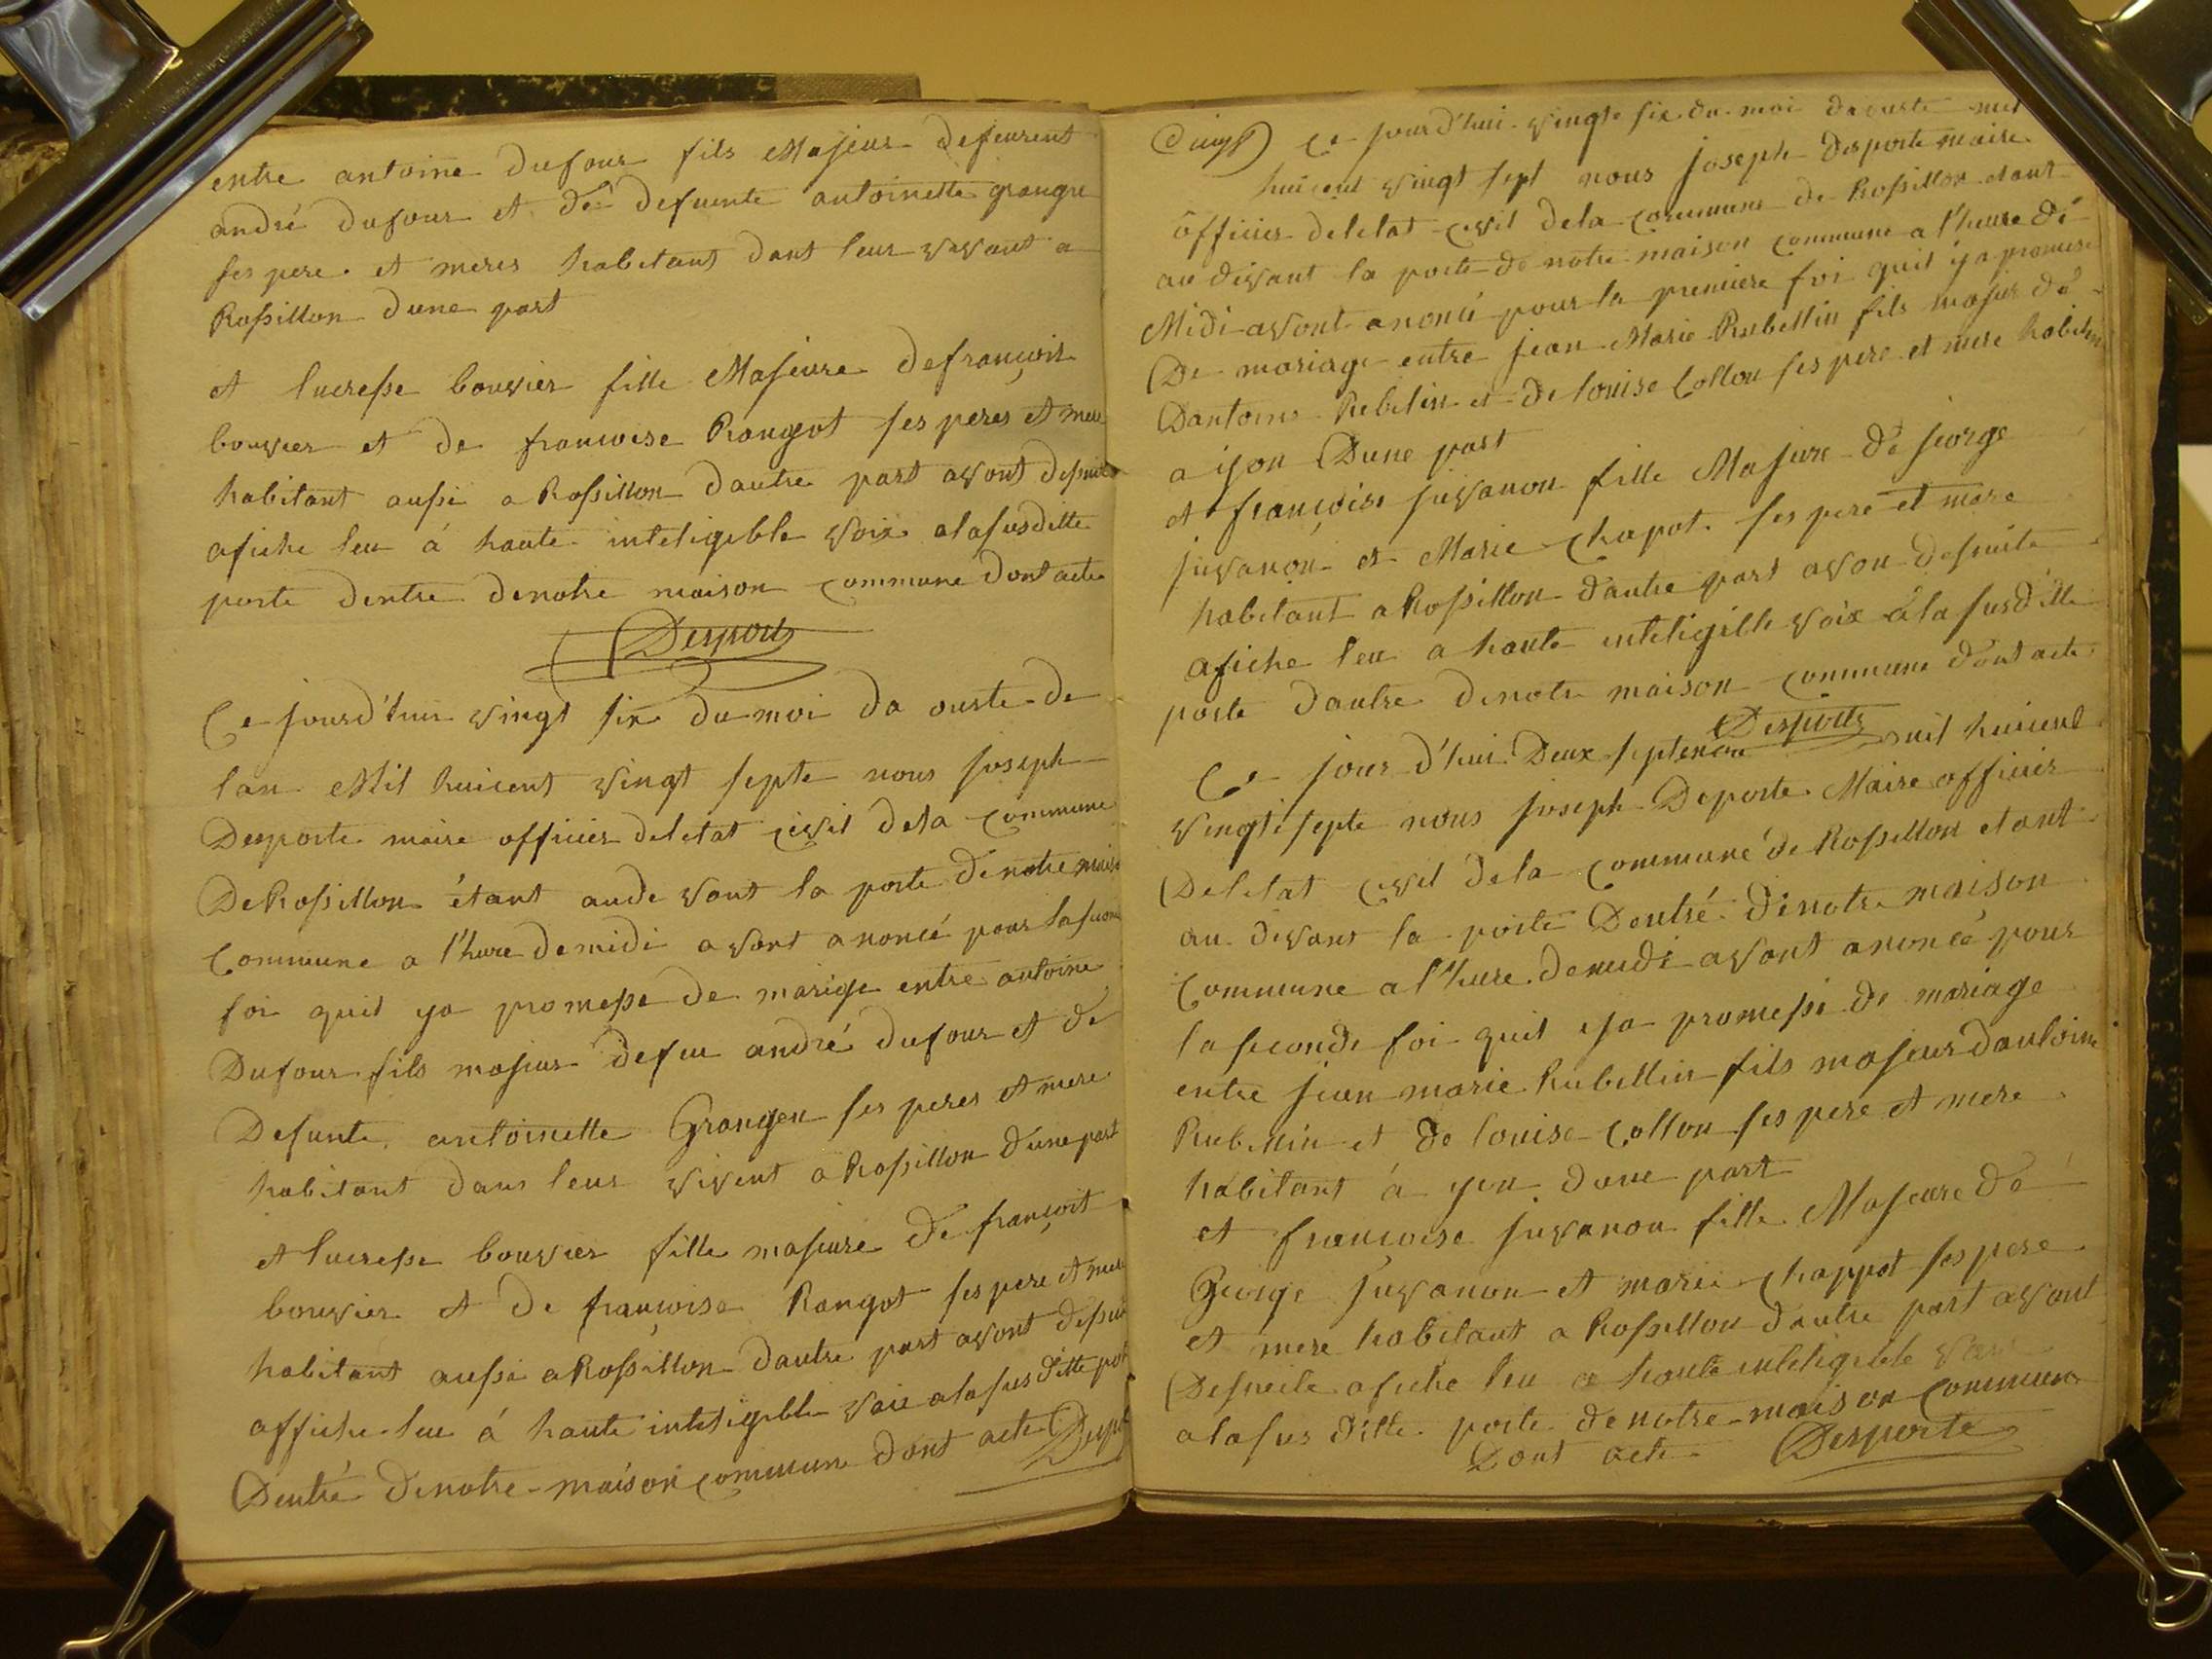 entre antoine dufour fils Majeur defeurent
andré dufour et dé defuente antoinette grangre
ses pere et meres habitant dant leur vivant a
Rossillon dune part
et lucresse bouvier fille Majeure defrançoit
bouvier et de francoise Rangot ses peres et mere
habitant aussi a Rossillon dautre part avont desuite
afiche leu á haute inteligible voix alasusditte
porte dentre denotre maison commune dont acte
Desporte
Ce jourd'hui vingt six du moi da ouste de
lan Mil huicent vingt septe nous joseph
Desporte maire officier deletat civil dela commune
De Rossillon étant aude vant la porte denotre maison
Commune a l'hure demidi avont anoncé pour la
foi quil ya promesse de marige entre antoine
Dufour fils majeur defeu andré dufour et de
Defunte antoinette Grangen ses peres et mere
habitant dans leur vivent a Rossillon dune part
et lucresse bouvier fille majeure de françoit
bouvier et de françoise Rangot ses pere et mere
habitant aussi a Rossillon dautre part avont desuite
affiche leu á haute inteligible voix alasusditte porte
Dentré denotre maison commune dont acte Desporte
Ce jourd'hui vingt six du moi daouste mil
huicent vingt sept nous joseph desporte maire
officier deletat civil dela commune de Rossillon etant
au divant la porte de notre maison commune a l'heure dé
Midi avont anoncé pour la premiere foi quil ÿa promese
De mariage entre jean Marie Rubellin fils majeur dé
Dantoine Rebelin et de louise Collon ses pere et mere habitan
a iyon Dune part
et françoise juvanon fille Majeure de jeorge
juvanon et Marie Chapot ses pere et mere
habitant a Rossillon dautre part avon desuite
afiche leu a haute inteligible voix a la susditte
porte dautre denotre maison commune dont acte
Desporte
Ce jour d'hui Deux septenon mil huicent
vingt septe nous joseph Deporte Maire officier
Deletat civil dela commune de Rossillon etant
au divant la porte Dentré dénotre maison
Commune a l'hure demidi avont anoncé pour
la seconde foi quil ya promesse de mariage
entre jean marie Rubellin fils majeur dantoine
Rubellin et de louise Collon ses pere et mere
habitant á yon dune part
et francoise juvanon fille Majeure dé
George juvanon et marie Chappot ses pere
et mere habitant a Rossillon dautre part avont
Desuite afiche leu a haute inteligible voix
alasus ditte porte denotre maison commune
Dont acte Desporte